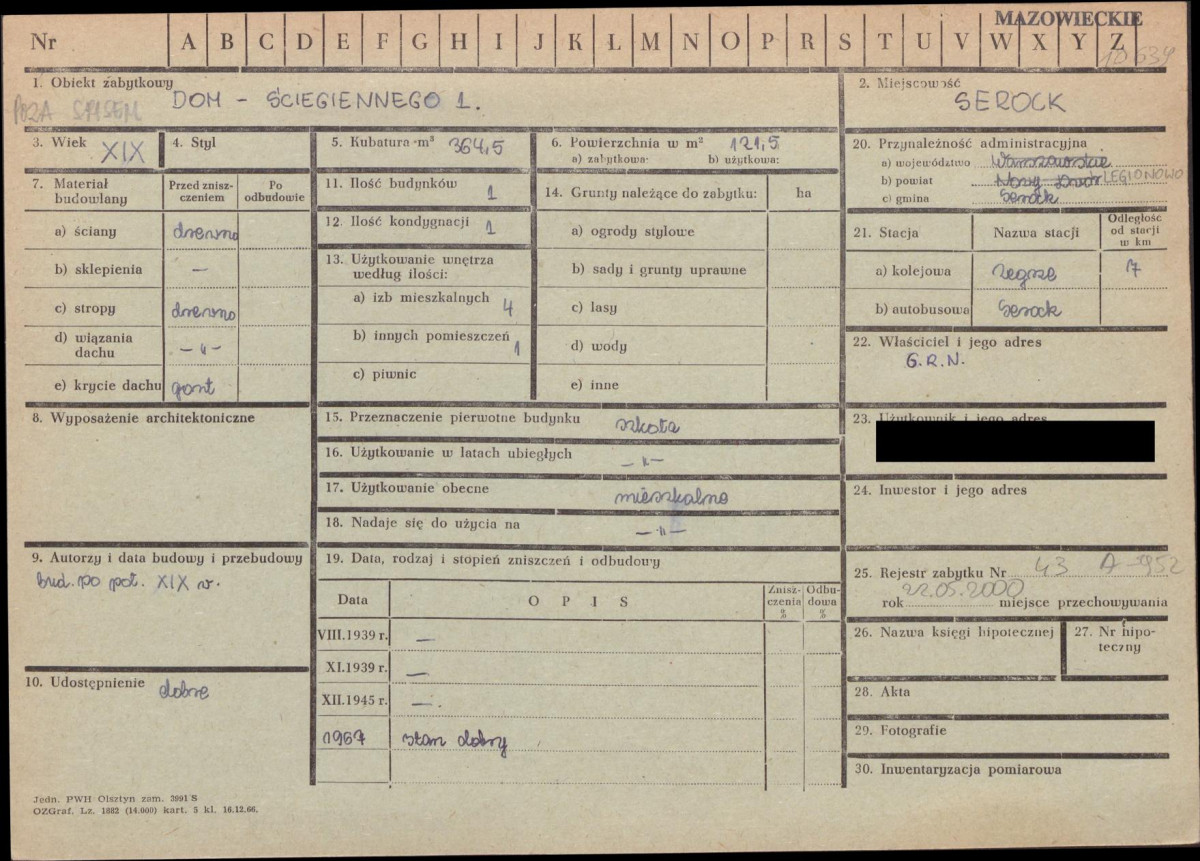 MAZOWIECKIE
Nr A B C D E F G H I J K Ł M N O P R S T U V W X Y Z
10639
1. Obiekt zabytkowy
POZA SPISEM
DOM - ŚCIEGIENNEGO 1.
2. Miejscowość
SEROCK
3. Wiek XIX
4. Styl
5. Kubatura m³ 364,5
6. Powierzchnia w m² 121,5
a) zabytkowa: b) użytkowa:
20. Przynależność administracyjna
a) województwo Warszawskie
b) powiat Nowy Dwór LEGIONOWO
c) gmina Serock
7. Materiał budowlany
Przed znisz-
czeniem
Po
odbudowie
a) ściany drewno
b) sklepienia —
c) stropy drewno
d) wiązania
dachu — „ —
e) krycie dachu gont
11. Ilość budynków 1
12. Ilość kondygnacji 1
13. Użytkowanie wnętrza
według ilości:
a) izb mieszkalnych 4
b) innych pomieszczeń 1
c) piwnic
14. Grunty należące do zabytku: ha
a) ogrody stylowe
b) sady i grunty uprawne
c) lasy
d) wody
e) inne
21. Stacja
Nazwa stacji
Odległość
od stacji
w km
a) kolejowa Zegrze 7
b) autobusowa Serock
22. Właściciel i jego adres
G.R.N.
8. Wyposażenie architektoniczne
15. Przeznaczenie pierwotne budynku szkoła
16. Użytkowanie w latach ubiegłych — „ —
17. Użytkowanie obecne mieszkalne
18. Nadaje się do użycia na — „ —
23. Użytkownik i jego adres
24. Inwestor i jego adres
9. Autorzy i data budowy i przebudowy
bud. po poł. XIX w.
19. Data, rodzaj i stopień zniszczeń i odbudowy
Data
OPIS
Znisz-
czenia
%
Odbu-
dowa
%
VIII.1939 r. —
XI.1939 r. —
XII.1945 r. —.
1967 stan dobry
25. Rejestr zabytku Nr 43 A-952
22.05.2000
rok miejsce przechowywania
26. Nazwa księgi hipotecznej
27. Nr hipo-
teczny
10. Udostępnienie dobre
28. Akta
29. Fotografie
30. Inwentaryzacja pomiarowa
Jedn. PWH Olsztyn zam. 3991 S
OZGraf. Lz. 1882 (14.000) kart. 5 kl. 16.12.66.